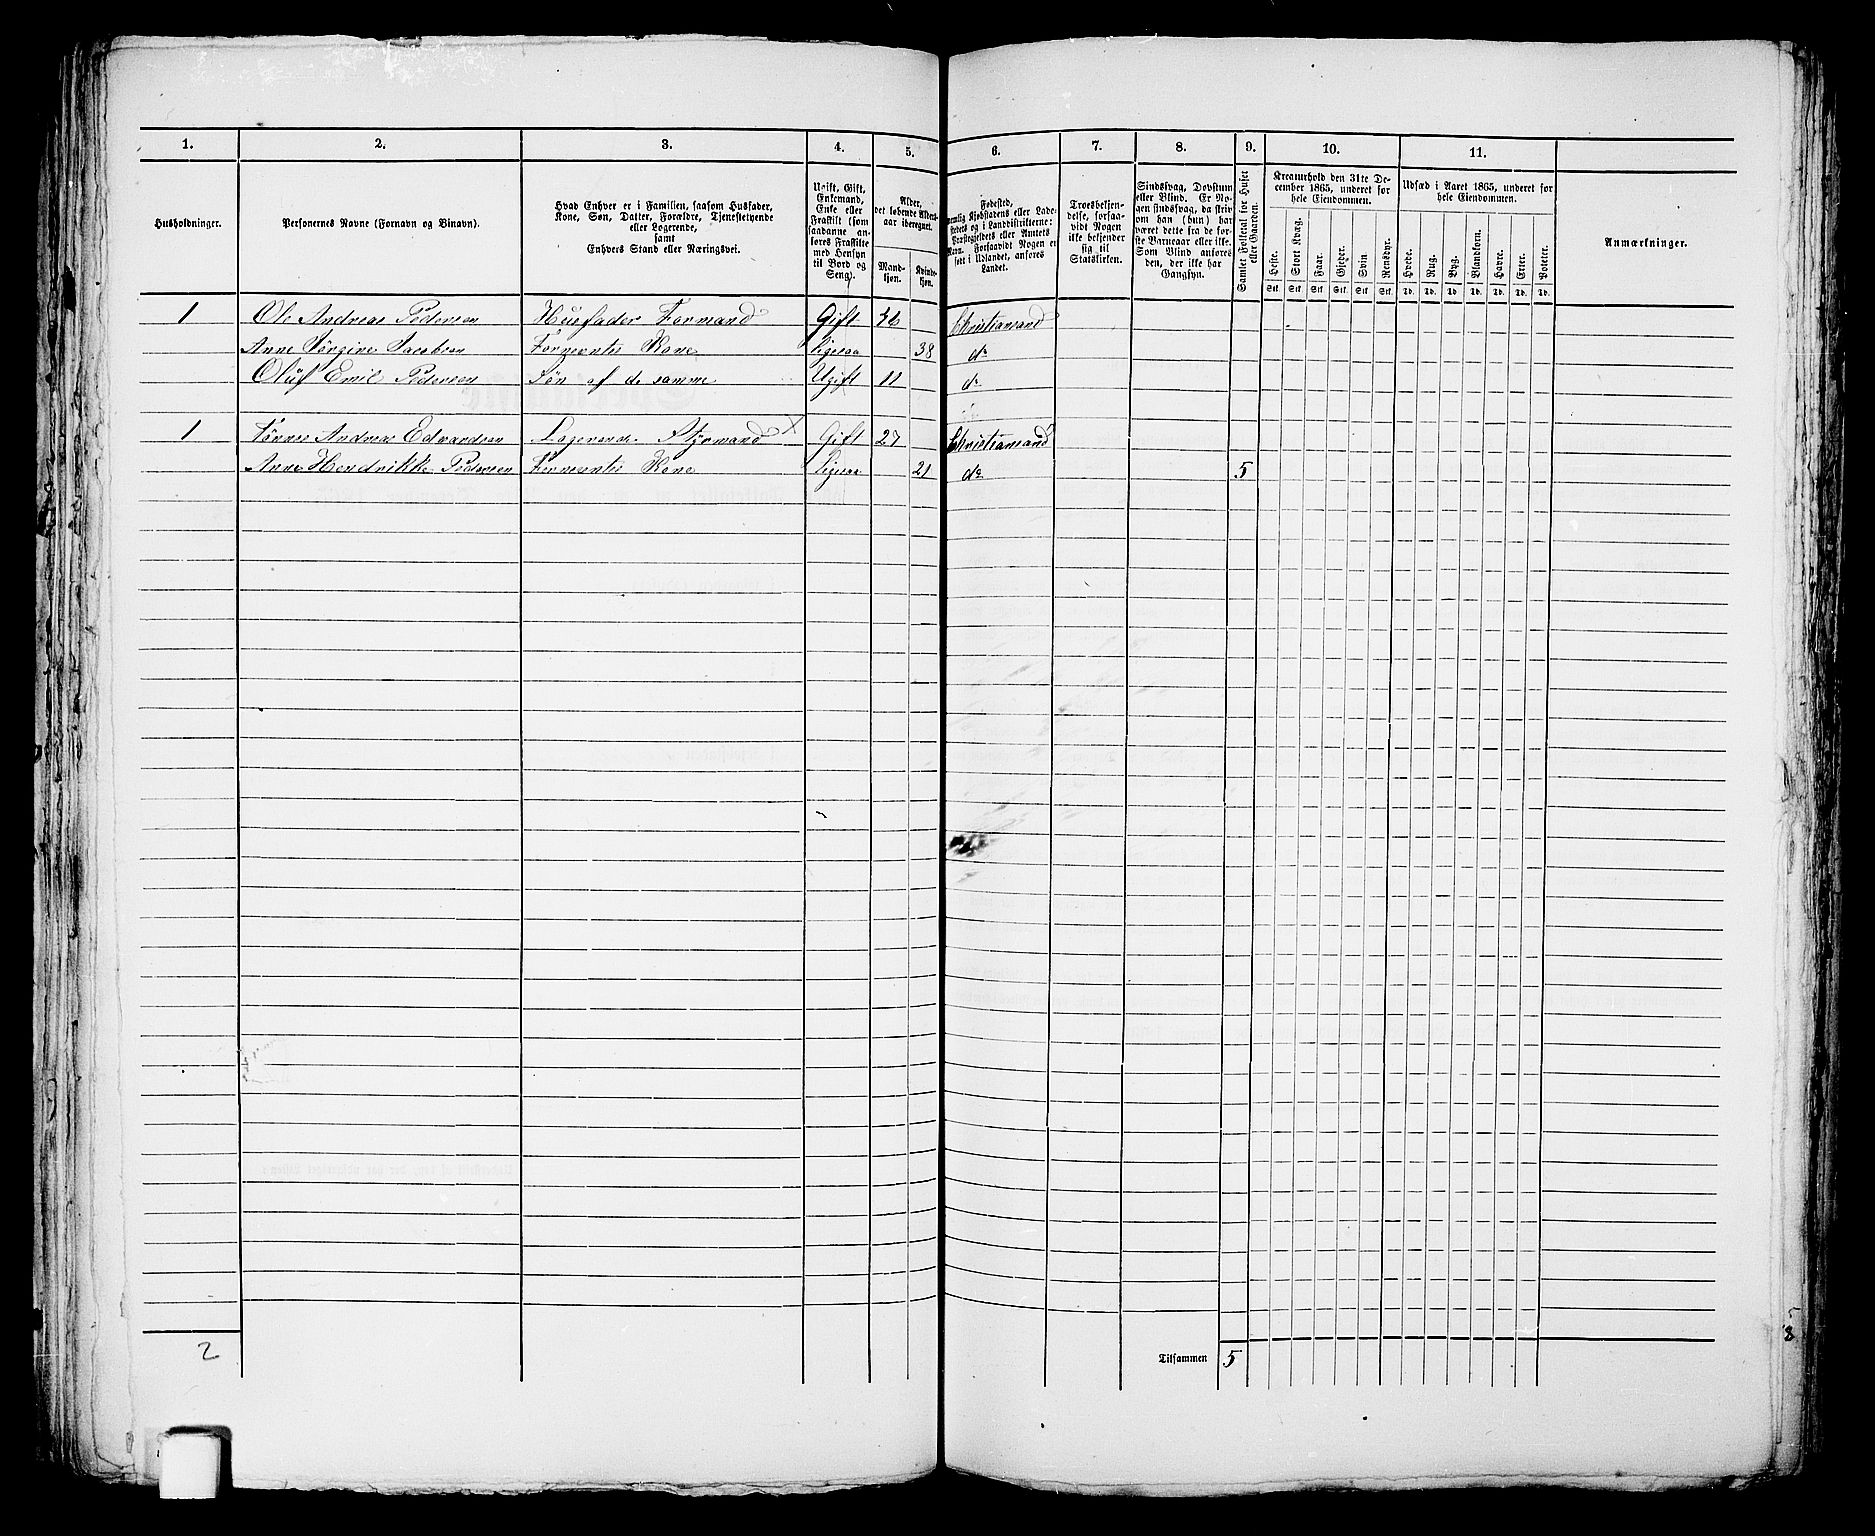 1. 2. 3. 4. 5. 6. 7. 8. 9. 10. 11.
Husholdninger.
Personernes Navne (Fornavn og Binavn).
Hvad Enhver er i Familien, saasom Husfader,
Kone, Søn, Datter, Forældre, Tjenestetyende
eller Logerende,
samt
Enhvers Stand eller Næringsvei.
Ugift, Gift,
Enkemand,
Enke eller
Fraskilt (som
saadanne an-
føres Fraskilte
med Hensyn
til Bord og
Seng).
Alder,
det løbende Alders-
aar iberegnet.
Mand-
kjøn.
Kvinde-
kjøn.
Fødested,
nemlig Kjøbstadens eller Lade-
stedets og i Landdistrikterne:
Præstegjeldets eller Amtets
Navn. Forsaavidt Nogen er
født i Udlandet, anføres
Landet.
Troesbekjen-
delse, forsaa-
vidt Nogen
ikke bekjender
sig til
Statskirken.
Sindssvag, Døvstum
eller Blind. Er No-
gen sindssvag, da skriv
om han (hun) har
været dette fra de før-
ste Barneaar eller ikke.
Som Blind anføres
den, der ikke har
Gangsyn.
Samlet Folketal for Huset
eller Gaarden.
Kreaturhold den 31te De-
cember 1865, underet for
hele Eiendommen.
Heste. Stort Kvæg. Faar. Gjeder. Svin Rensdyr.
Stk. Stk. Stk. Stk. Stk. Stk.
Udsæd i Aaret 1865, underet for
hele Eiendommen.
Hvede. Rug. Byg. Blandkorn. Havre. Erter. Poteter.
Td. Td. Td. Td. Td. Td. Td.
Anmærkninger.
1 Ole Andreas Pedersen Husfader Formand Gift 36 Christiansand
Anne Jørgine Jacobsen Formentes Kone Ligesaa 38 do
Oluf Emil Pedersen Søn af de samme Ugift 11 do
1 Tønnes Andreas Edvardsen Logerende Styrmand X Gift 27 Christiansand
Anne Hendrikke Pedersen Formentes Kone Ligesaa 21 do 5
2 Tilsammen 5